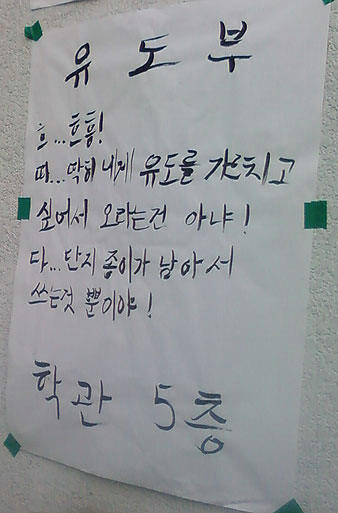 유도부
흐...흐흥!
따...딱히 네게 유도를 가르치고
싶어서 오라는건 아냐!
다...단지 종이가 남아서
쓰는것 뿐이야!
학관 5층